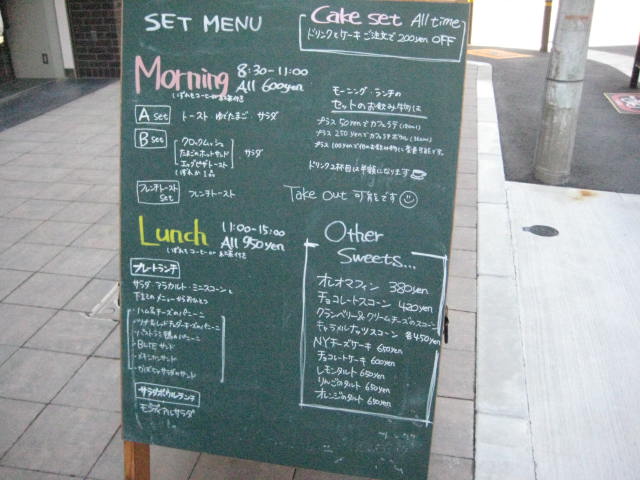 SET MENU
Cake set All time
ドリンクとケーキご注文で200yen OFF
Morning 8:30-11:00
All 600yen
いずれもコーヒーor紅茶付き
A set トースト ゆでたまご サラダ
B set
クロックムッシュ
たまごのホットサンド
エッグピザトースト
いずれか1品
サラダ
フレンチトースト set フレンチトースト
モーニング・ランチの
セットのお飲み物は
プラス50yenでカフェラテ
プラス250yenでカフェラテボウル
プラス100yenで他のお飲み物に変更可能です。
ドリンク2杯目は半額になります
Take Out 可能です
Lunch 11:00-15:00
All 950yen
いずれもコーヒーor紅茶付き
プレートランチ
サラダ・アラカルト・ミニスコーンと
下記のメニューからおひとつ
・ハム&チーズのパニーニ
・ツナ&レッドチェダーチーズのパニーニ
・パストラミ鴨のパニーニ
・BLTE サンド
・メキシカンサンド
サラダボウルランチ
モンディアルサラダ
Other
Sweets...
オレオマフィン 380yen
チョコレートスコーン 420yen
クランベリー&クリームチーズのスコーン
キャラメルナッツスコーン 各450yen
NYチーズケーキ 650yen
チョコレートケーキ 600yen
レモンタルト 650yen
りんごのタルト 650yen
オレンジのタルト 650yen